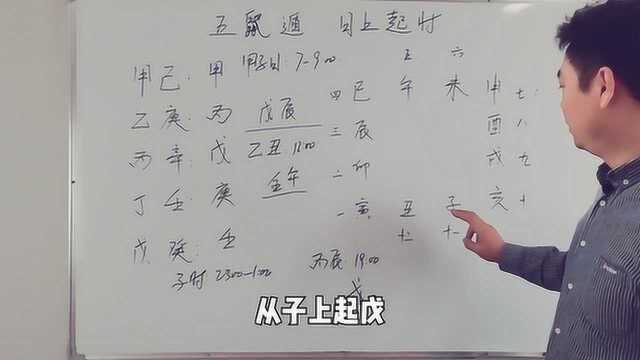 五鼠遁 日上起时
甲己：甲 甲子日：7-9:00
五 六
四 巳 午 未 申 七
乙庚：丙 戊辰
三 辰 酉 八
丙辛：戊 乙丑：12:00
二 卯 戌 九
丁壬：庚 壬午
一 寅 丑 子 亥 十
十二 十一
戊癸：壬
子时 23:00-1:00 丙辰 19:00
戊
从子上起戊